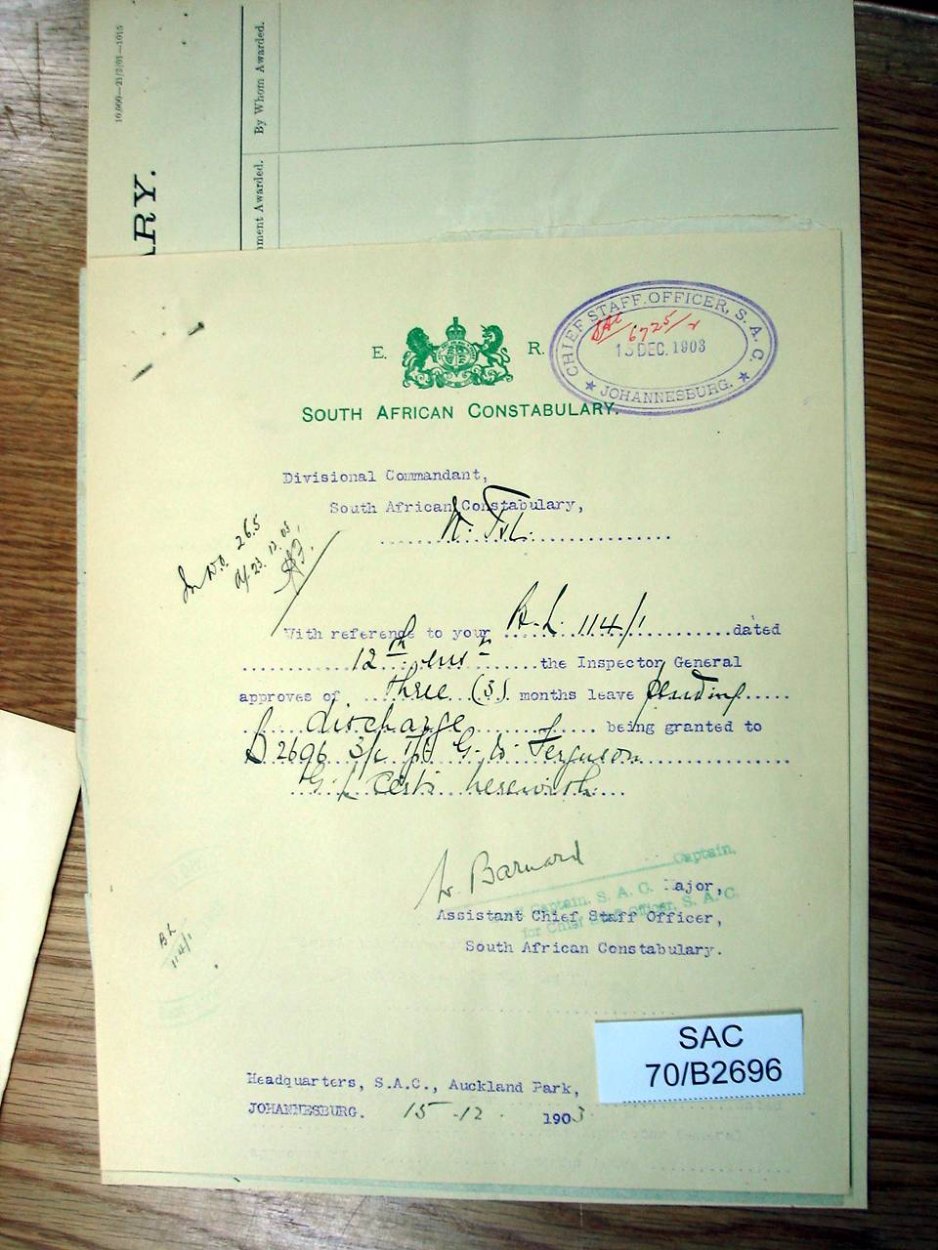 10,000—21/3/01—1015
ARY.
ment Awarded.
By Whom Awarded.
E. R.
SOUTH AFRICAN CONSTABULARY.
CHIEF STAFF OFFICER, S. A. C.
SAC/6725/2
15 DEC. 1903
★ JOHANNESBURG. ★
Divisional Commandant,
South African Constabulary,
N. Tvl.
In D.O. 265
d/23.12.03.
With reference to your B.L. 114/1 dated
12th inst the Inspector General
approves of three (3) months leave pending
discharge being granted to
B 2696 3/c Tpr G. W. Ferguson
G/L Certs herewith.
W. Barnard
Captain,
Captain, S. A. C.
for Chief Staff Officer, S. A. C.
Major,
Assistant Chief Staff Officer,
South African Constabulary.
BL
114/1
SAC
70/B2696
Headquarters, S.A.C., Auckland Park,
JOHANNESBURG. 15-12-1903